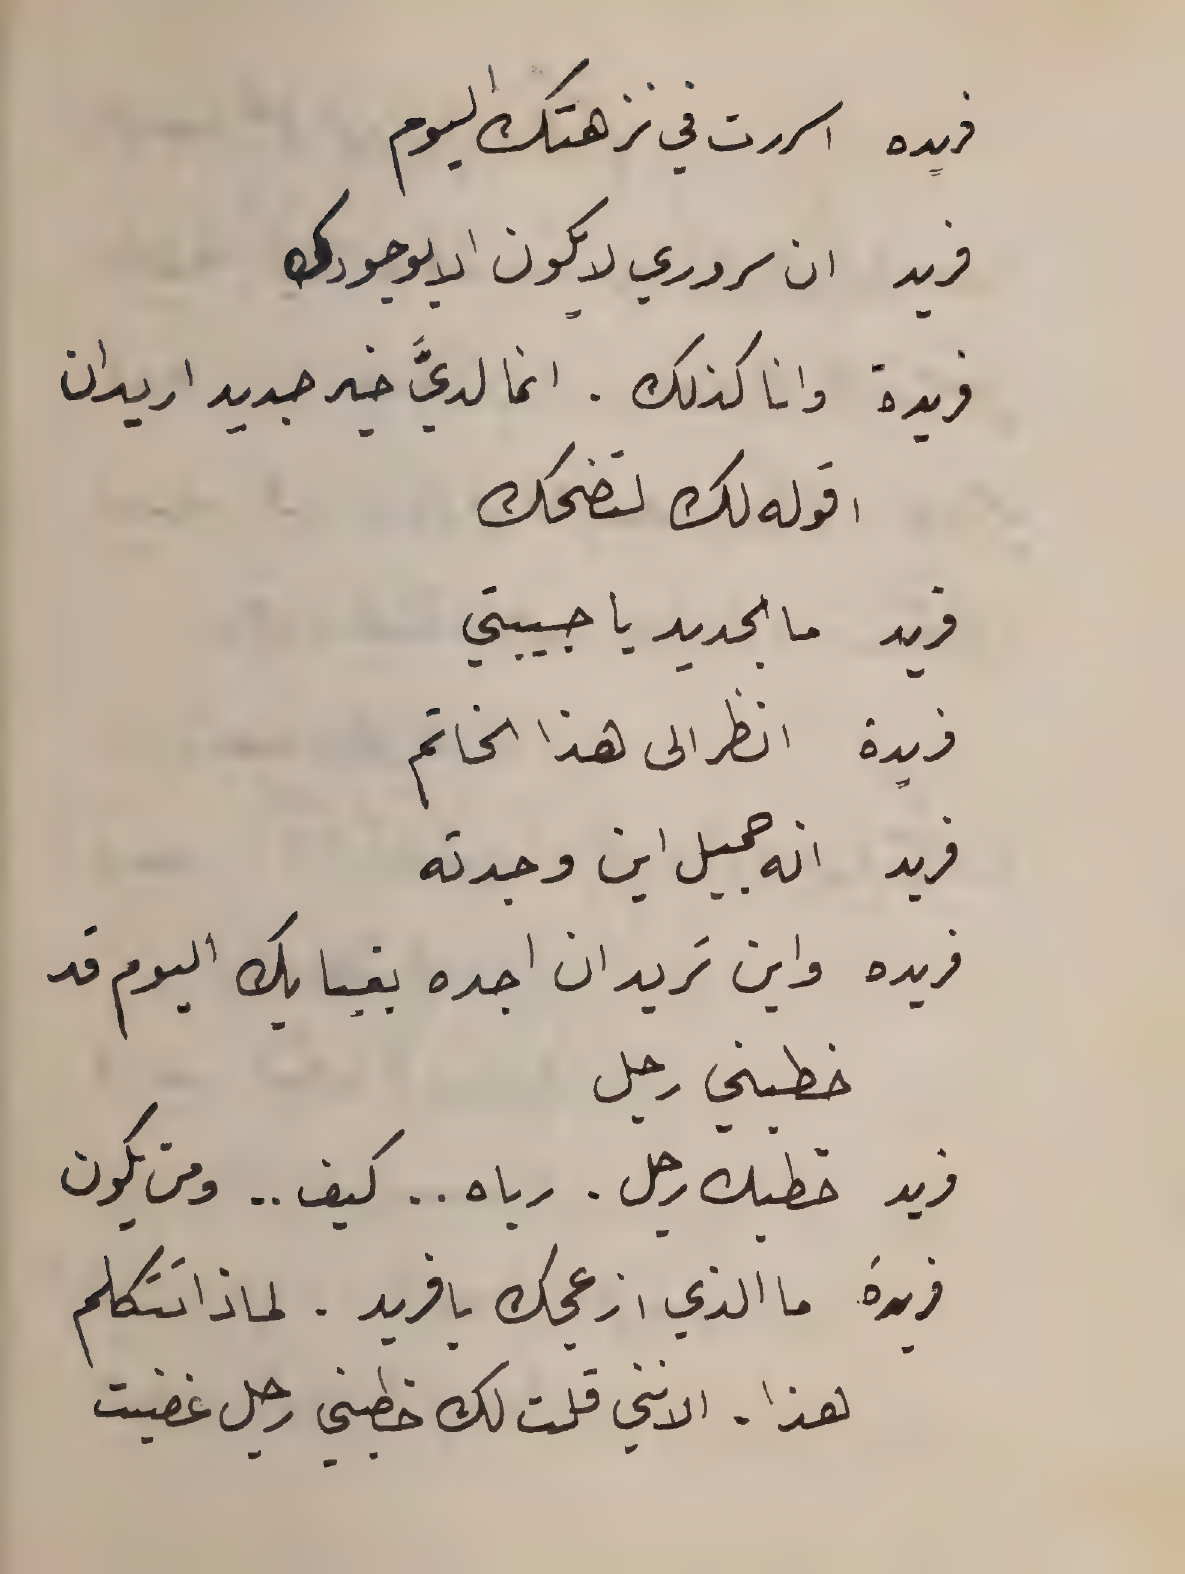 فريده اسررت في نزهتك اليوم
فريد ان سروري لا يكون الا بوجودك
فريدة وانا كذلك . انما لديَّ خبر جديد اريد ان
اقوله لك لتضحك
فريد ما الجديد يا حبيبتي
فريدة انظر الى هذا الخاتم
فريد انه جميل اين وجدته
فريده واين تريد ان اجده بغيابك اليوم قد
خطبني رجل
فريد خطبك رجل . رباه .. كيف .. ومن يكون
فريدة ما الذي ازعجك يا فريد . لماذا تتكلم
هكذا . الانني قلت لك خطبني رجل غضبت